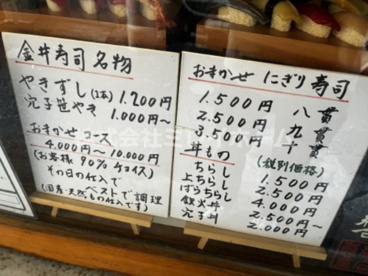 金井寿司 名物
やきずし(1本) 1.200円
穴子笹やき 1.000円〜
おまかせコース
4.000円〜10.000円
(お客様90%チョイス)
その日の仕入で
ベストで調理
(国産・天然もの仕入です)
おまかせ にぎり寿司
1.500円 八貫
2.500円 九貫
3.500円 十貫
丼もの (税別価格)
ちらし 1.500円
上ちらし 2.500円
ばらちらし 4.000円
鉄火丼 2.500円〜
穴子丼 2.000円